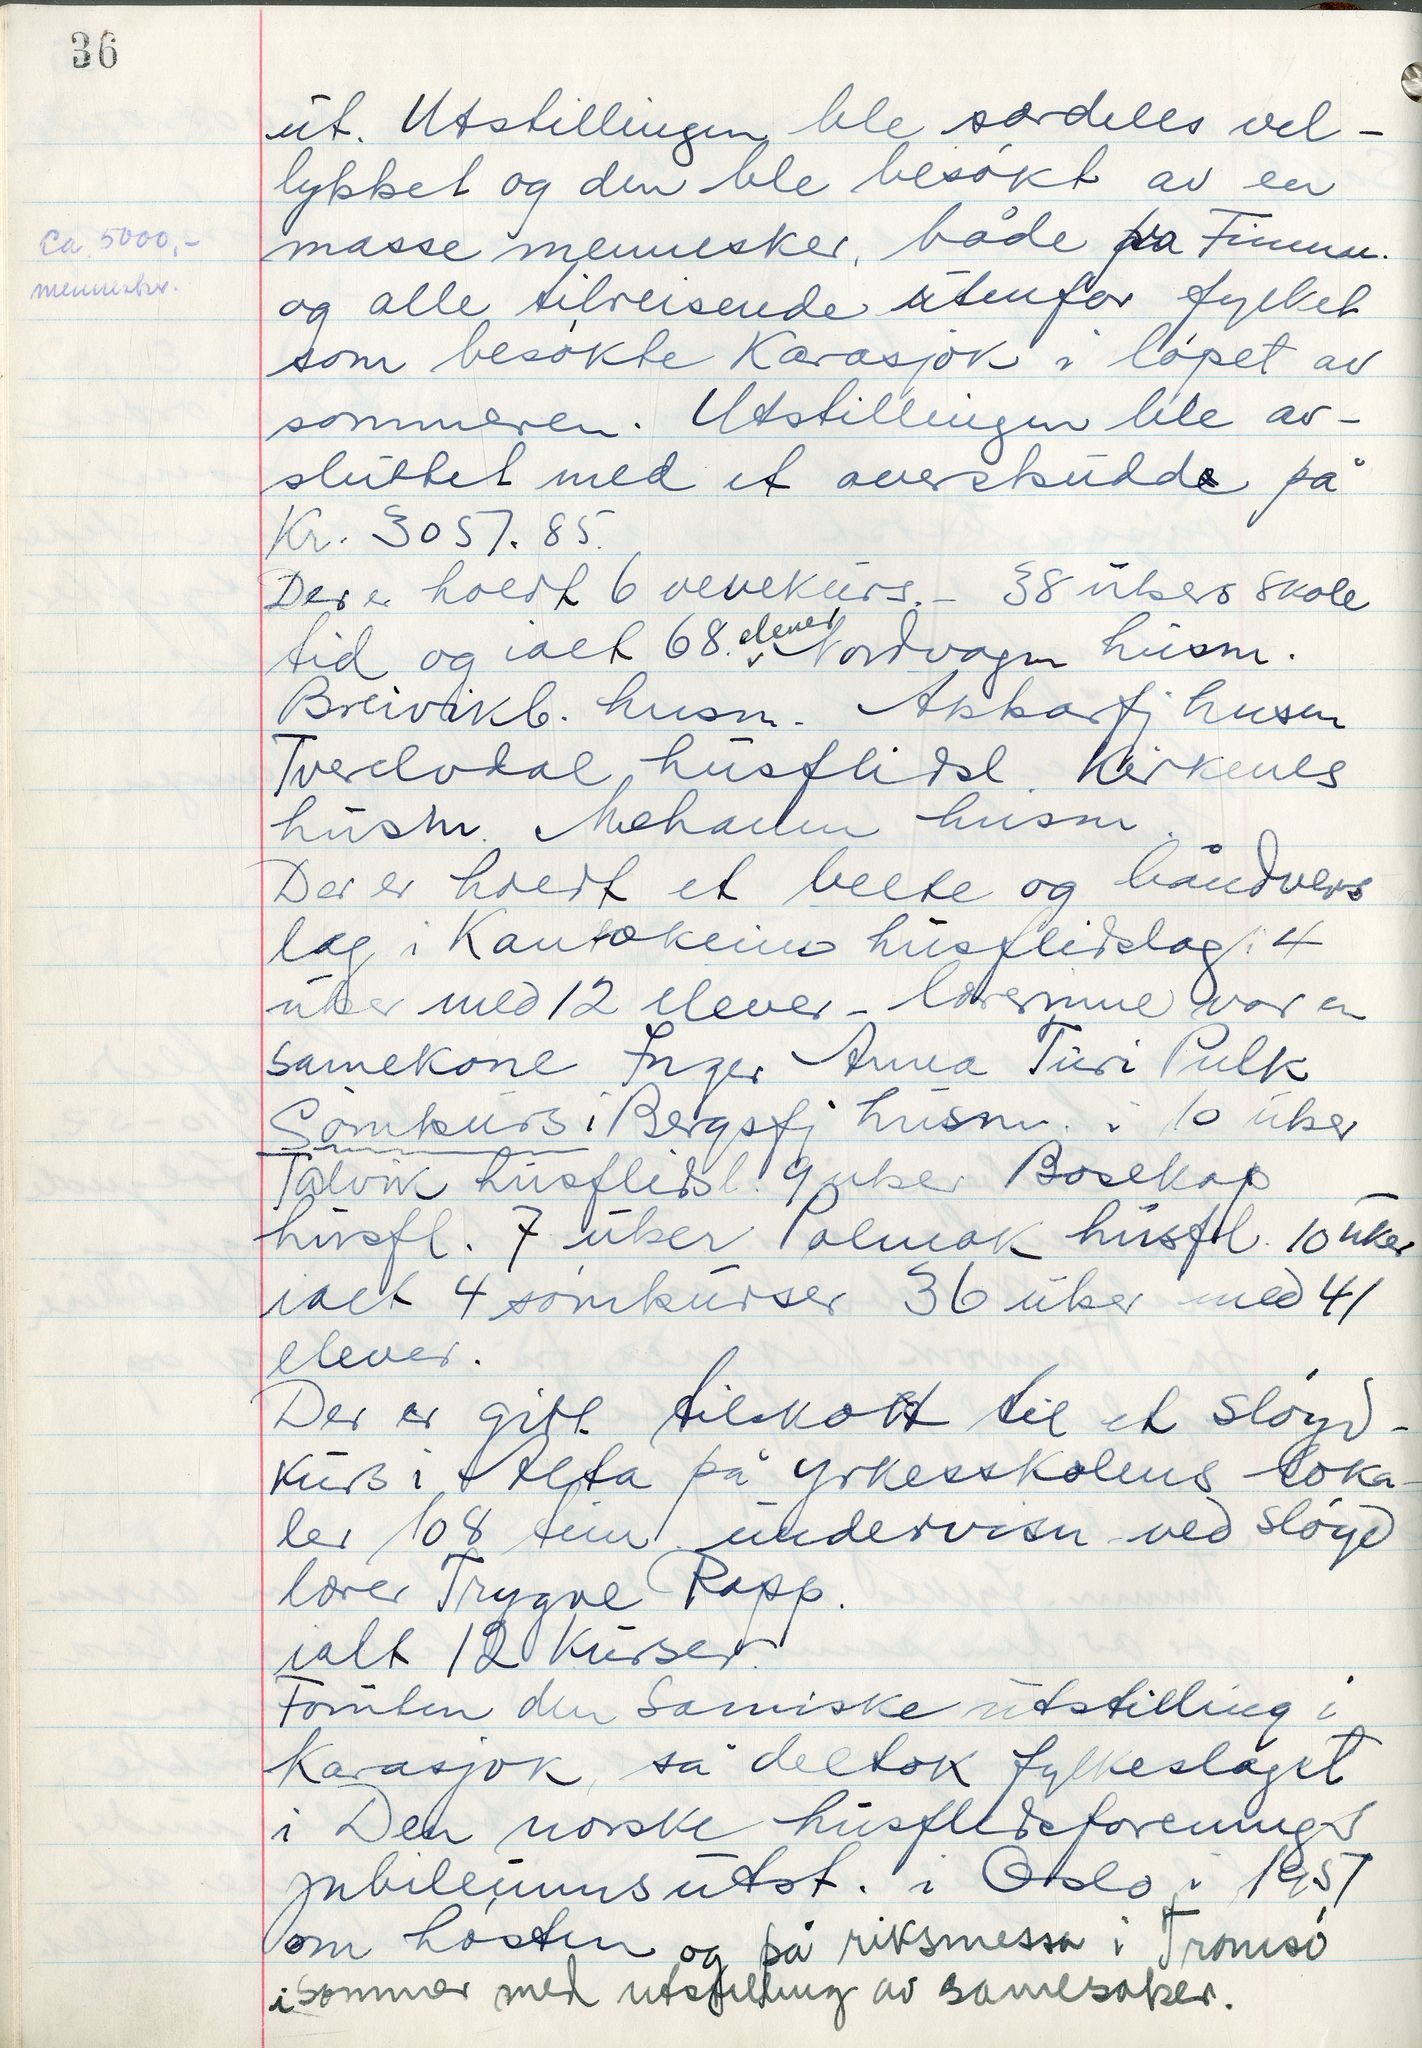 36
út. Utstillingen ble særdeles vel-
lykket og den ble besøkt av en
Ca. 5000,-
mennesker.
masse mennesker, både fra Finnm.
og alle tilreisende útenfor fylket
som besøkte Karasjok i løpet av
sommeren. Utstillingen ble av-
slúttet med et overskúdd på
Kr. 3057.85.
Der er holdt 6 vevekúrs. - 38 úkers skole
tid og ialt 68 elever Nordvågen húsm.
Breivikb. husm. Akkarfj husm
Tverelvdal húsflidsl. Kirkenes
húsm. Mehamn húsm.
Der er holdt et belte og båndvevs
lag i Kautokeino húsflidslag i 4
úker med 12 elever - lærerinne var en
samekone Inger Anna Túri Pulk
Sømkúrs i Bergsfj húsm. i 10 úker
Talvik húsflidsl. 9 uker Bosekop
húsfl. 7 úker Polmak húsfl. 10 úker
ialt 4 sømkúrser 36 úker med 41
elever.
Der er gitt tilskott til et sløyd-
kúrs i Alta på yrkesskolens loka-
ler 108 tim úndervisn ved sløyd
lærer Trygve Rapp.
ialt 12 kúrser.
Forúten den Samiske útstilling i
Karasjok, så deltok fylkeslaget
i Den norske húsflidsforenings
jubileúmsútst. i Oslo i 1957
om høsten og på riksmessa i Tromsø
i sommer med utstilling av samesaker.